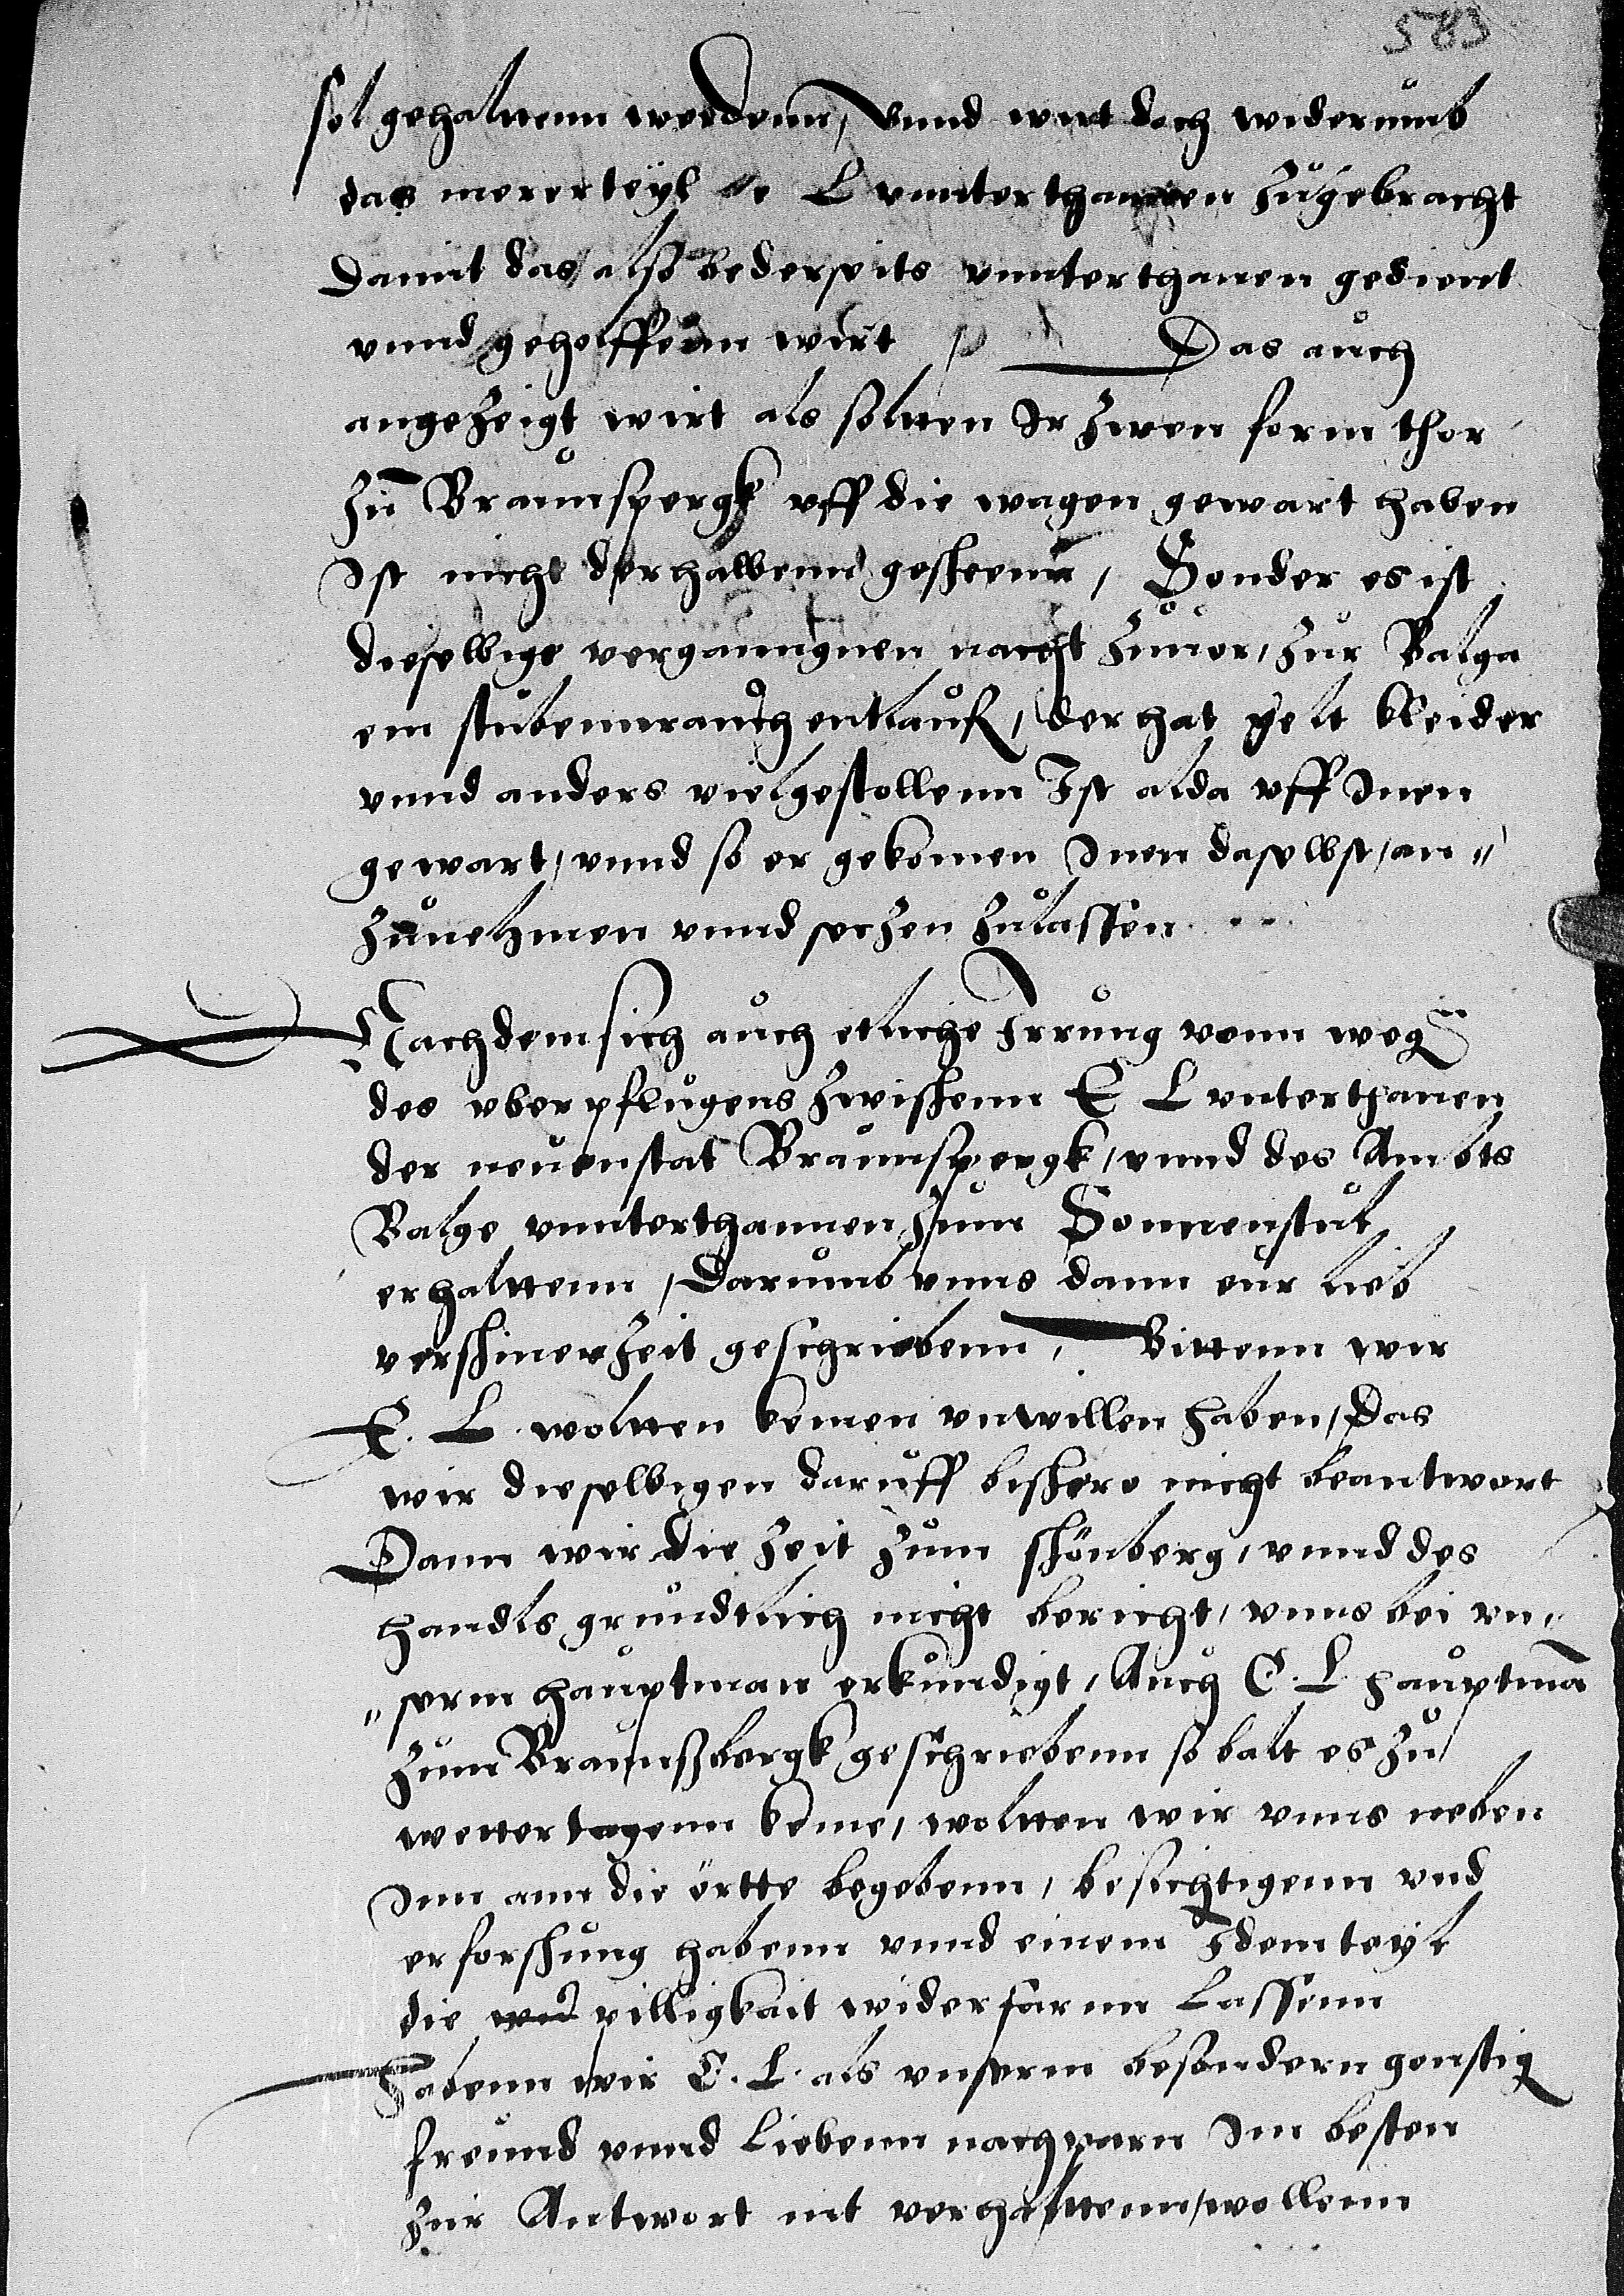 583
sol gehalttenn werdenn, Vnnd wirt doch widerumb
das mererteyl E L vnnterthannen zugebracht
Damit das also bederseits vnnterthanen gedient
vnnd geholffenn wirt / Das auch
angezeigt wirt als soltten Ir zwen form thor
zu Braunspergk vff die wagen gewart haben
Ist nicht derhalbenn gescheenn, Sonder es ist
dieselbige vergangnen nacht zuuor, zur Balga
ein stubennrauch entlauff, der hat gelt kleider
vnnd anders viel gestollenn Ist alda vff Inen
gewart, vnnd so er gekomen Inen daselbst, an„
zunehmen vnnd seczen zulassen
Nachdem sich auch etliche Irrung vonn weg
des vberpflugens zwischenn E L vnterthanen
der neuenstat Braunspergk, vnnd des Ambts
Balge vnnterthannen zum Sonnenstul
erhalttenn, Darumb vnns dann eur lieb
verschiner zeit geschriebenn, Bittenn wir
E. L. woltten keinen vnwillen haben, Das
wir dieselbigen daruff bishero nicht beantwort
Dann wir die zeit zum schönberg, vnnd des
handls grundtlich nicht bericht, vnns bei vn„
„serm hauptman erkundigt, Auch E. L hauptma
zum Braunßbergk geschriebenn so balt es zu
wettertagenn keme, woltten wir vnns neben
Inn ann die örtte begebenn, besichtigenn vnd
erforschung habenn vnnd einem Idem teyl
die pilligkait widerfarnn Lassenn
Habenn wir E. L. als vnserm besondern gonstig
freund vnnd Liebenn nachparn Im besten
zur Antwort nit verhalttenn, wollenn